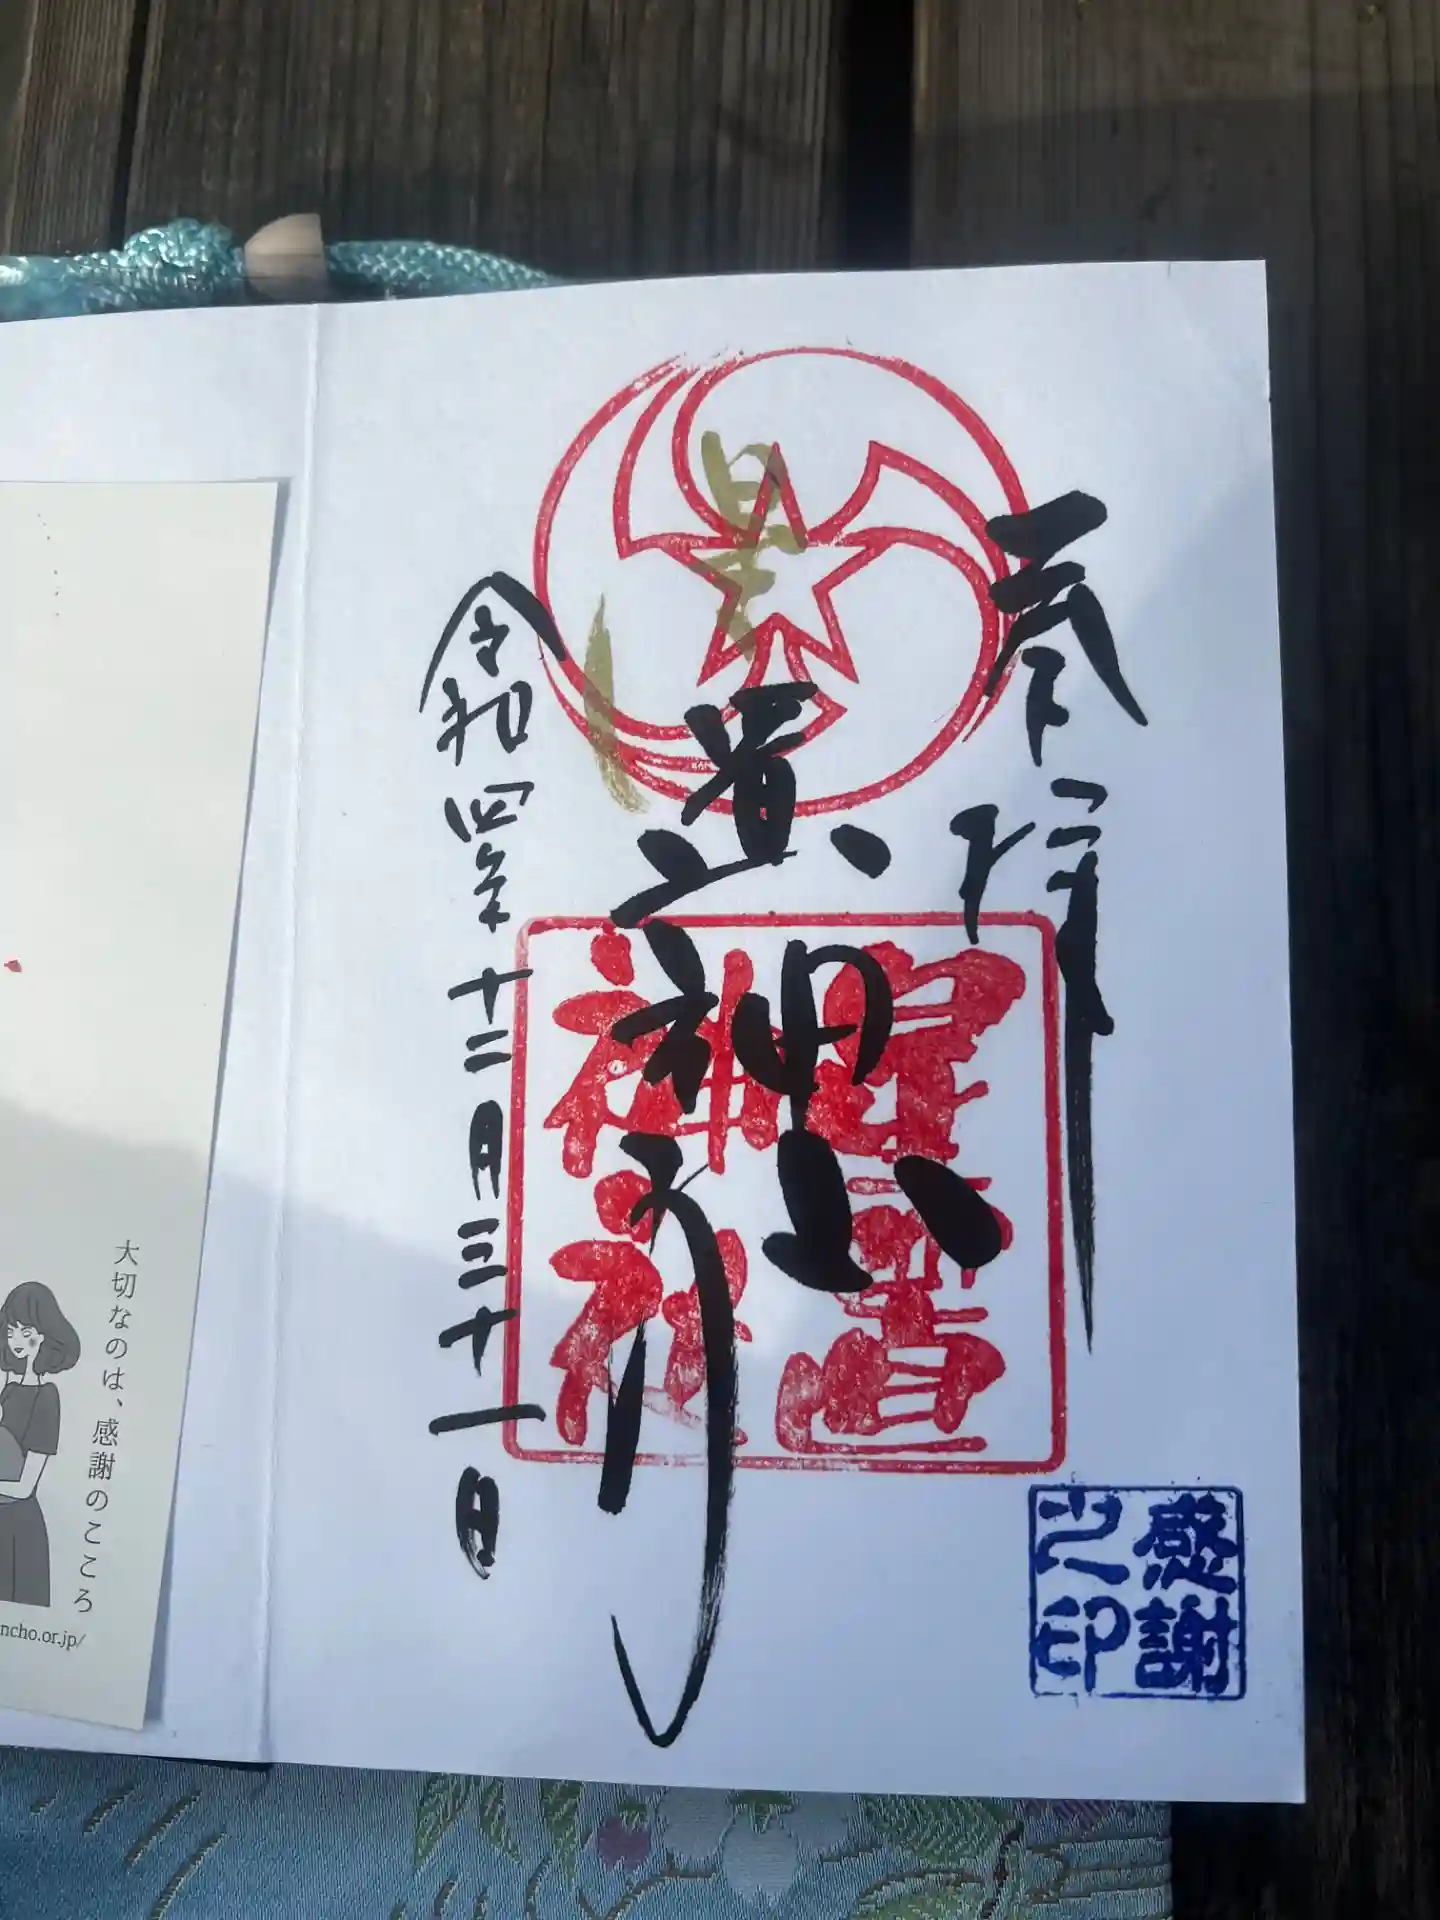 奉拝
星置神社
星置
神社
令和四年十二月三十一日
感謝
之印
大切なのは、感謝のこころ
ncho.or.jp/